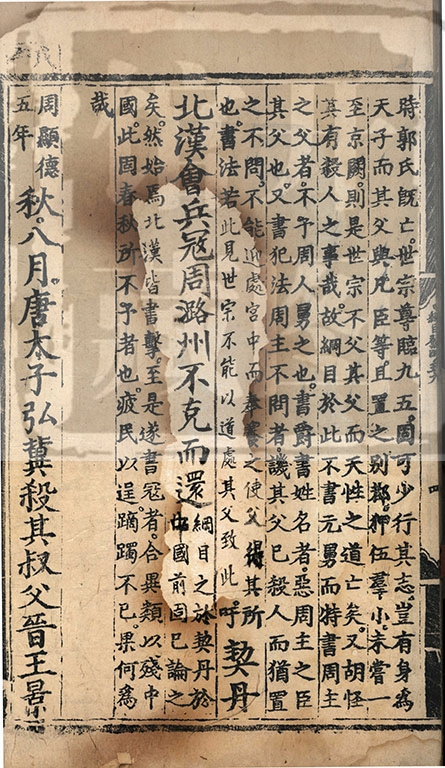 時郭氏旣亡。世宗尊臨九五。固可少行其志。豈有身為
天子而其父與凡臣等。且置之別都。狎伍羣小。未嘗一
至京闕。則是世宗不父其父而天性之道亡矣。又胡怪
其有殺人之事哉。故綱目於此不書元舅而特書周主
之父者。不予周人舅之也。書爵書姓名者。惡周主之臣
其父也。又書犯法周主不問者。譏其父已殺人而猶置
之不問。不能迎處宮中而奉養之使父得其所
也。書法若此見世宗不能以道處其父致此吁
契丹
北漢會兵寇周潞州不克而還
綱目之於契丹於
中國前固已論之
矣。然始焉北漢皆書擊。至是遂書寇者。合異類以殘中
國此固春秋所不予者也。疲民以逞蹢躅不已。果何為
哉
周顯德
五年
秋。八月。唐太子弘冀殺其叔父晉王景